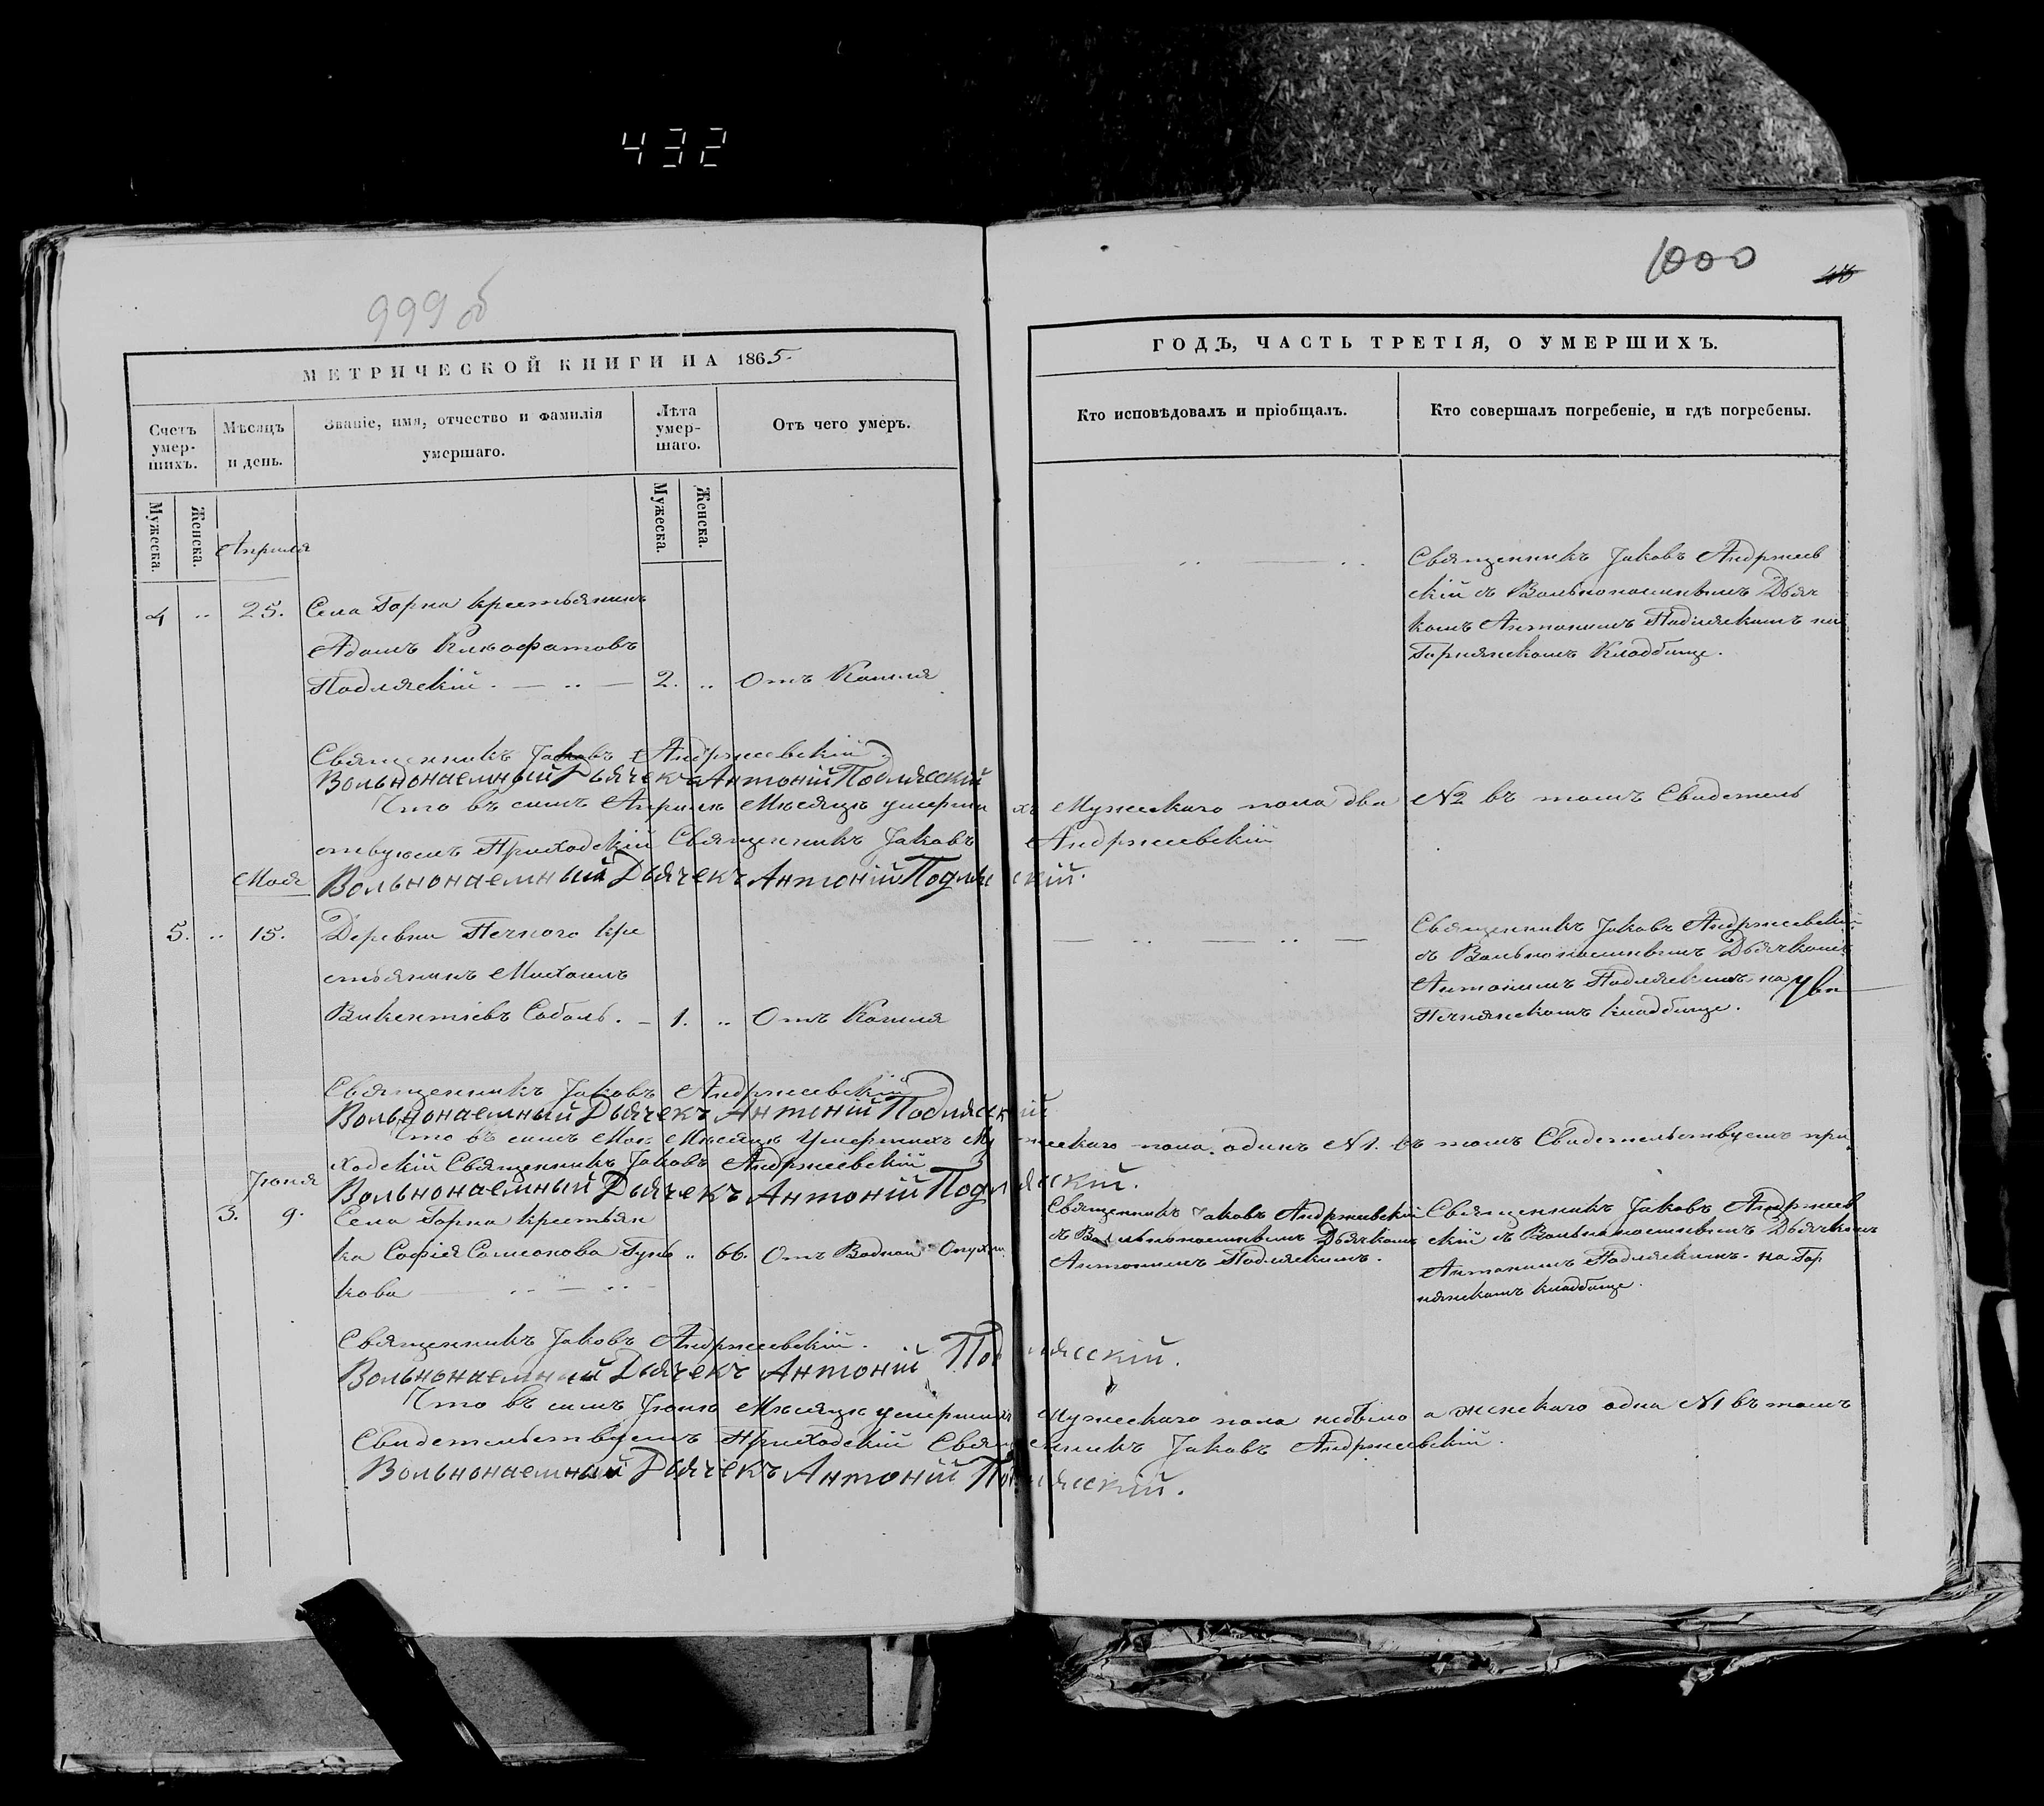 432
999 об
1000
МЕТРИЧЕСКОЙ КНИГИ НА 1865.
ГОДЪ, ЧАСТЬ ТРЕТІЯ, О УМЕРШИХЪ.
Счетъ умер-шихъ.
Мѣсяцъ и день.
Званіе, имя, отчество и фамилія умершаго.
Лѣта умер-шаго.
Отъ чего умеръ.
Кто исповѣдовалъ и пріобщалъ.
Кто совершалъ погребеніе, и гдѣ погребены.
Мужеска.
Женска.
Мужеска.
Женска.
Апреля
4 „ 25. Села Горна крестьянинъ
Адамъ
Подляскій. — „ — 2. „ Отъ Кашля
Священникъ Іаковъ Андржеев
скій съ Вольнонаемнымъ Дьяч
комъ Антониемъ Подляскимъ на
Горнянскомъ Кладбище.
Священникъ Іаковъ Андржеевскій
Вольнонаемный Дьячекъ Антоній Подлясскій
Что въ семъ Апреле Месяце умерших Мужескаго пола два №2 въ томъ Свидетель
ствуемъ Приходскій Священникъ Іаковъ Андржеевскій
Вольнонаемный Дьячекъ Антоній Подляскій.
Мая
5. „ 15. Деревни Печного кре
стьянинъ Михаилъ
Викентіевъ Соболь. — 1. „ Отъ Кашля
Священникъ Іаковъ Андржеевскій
съ Вольнонаемнымъ Дьячкомъ
Антониемъ Подляскимъ на
Печнянскомъ кладбище.
Священникъ Іаковъ Андржеевскій
Вольнонаемный Дьячекъ Антоній Подлясскій
Что въ семъ Мае Месяце Умершихъ Мужескаго пола один №1. въ томъ Свидетельствуемъ при
ходскій Священникъ Іаковъ Андржеевскій
Вольнонаемный Дьячекъ Антоній Подлясскій.
Іюня
3. 9. Села Горна крестьян
ка Софія Самсонова Гунь „ 66. Отъ Водной Опухли
кова — „ — „
Священникъ Іаковъ Андржеевскій
съ Вольнонаемнымъ Дьячкомъ
Антониемъ Подляскимъ.
Священникъ Іаковъ Андржеев
скій съ Вольнонаемнымъ Дьячкомъ
Антониемъ Подляскимъ. на Гор
нянскомъ кладбище.
Священникъ Іаковъ Андржеевскій.
Вольнонаемный Дьячекъ Антоній Подлясскій.
Что въ семъ Іюне Месяце умерших Мужескаго пола небыло а женскаго одна №1 въ томъ
Свидетельствуемъ Приходскій Священникъ Іаковъ Андржеевскій.
Вольнонаемный Дьячекъ Антоній Подлясскій.